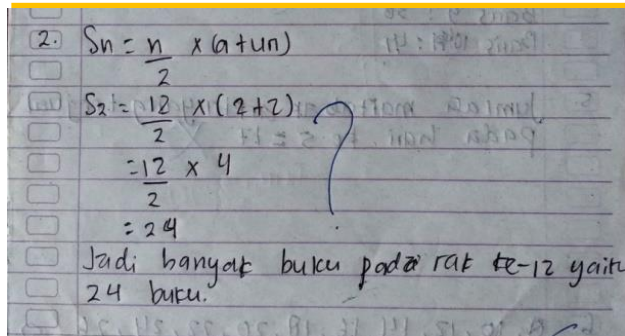 2. Sn = n/2 x (a+un)
S2 = 12/2 x (2+2)
= 12/2 x 4
= 24
Jadi banyak buku pada rak ke-12 yaitu
24 buku.